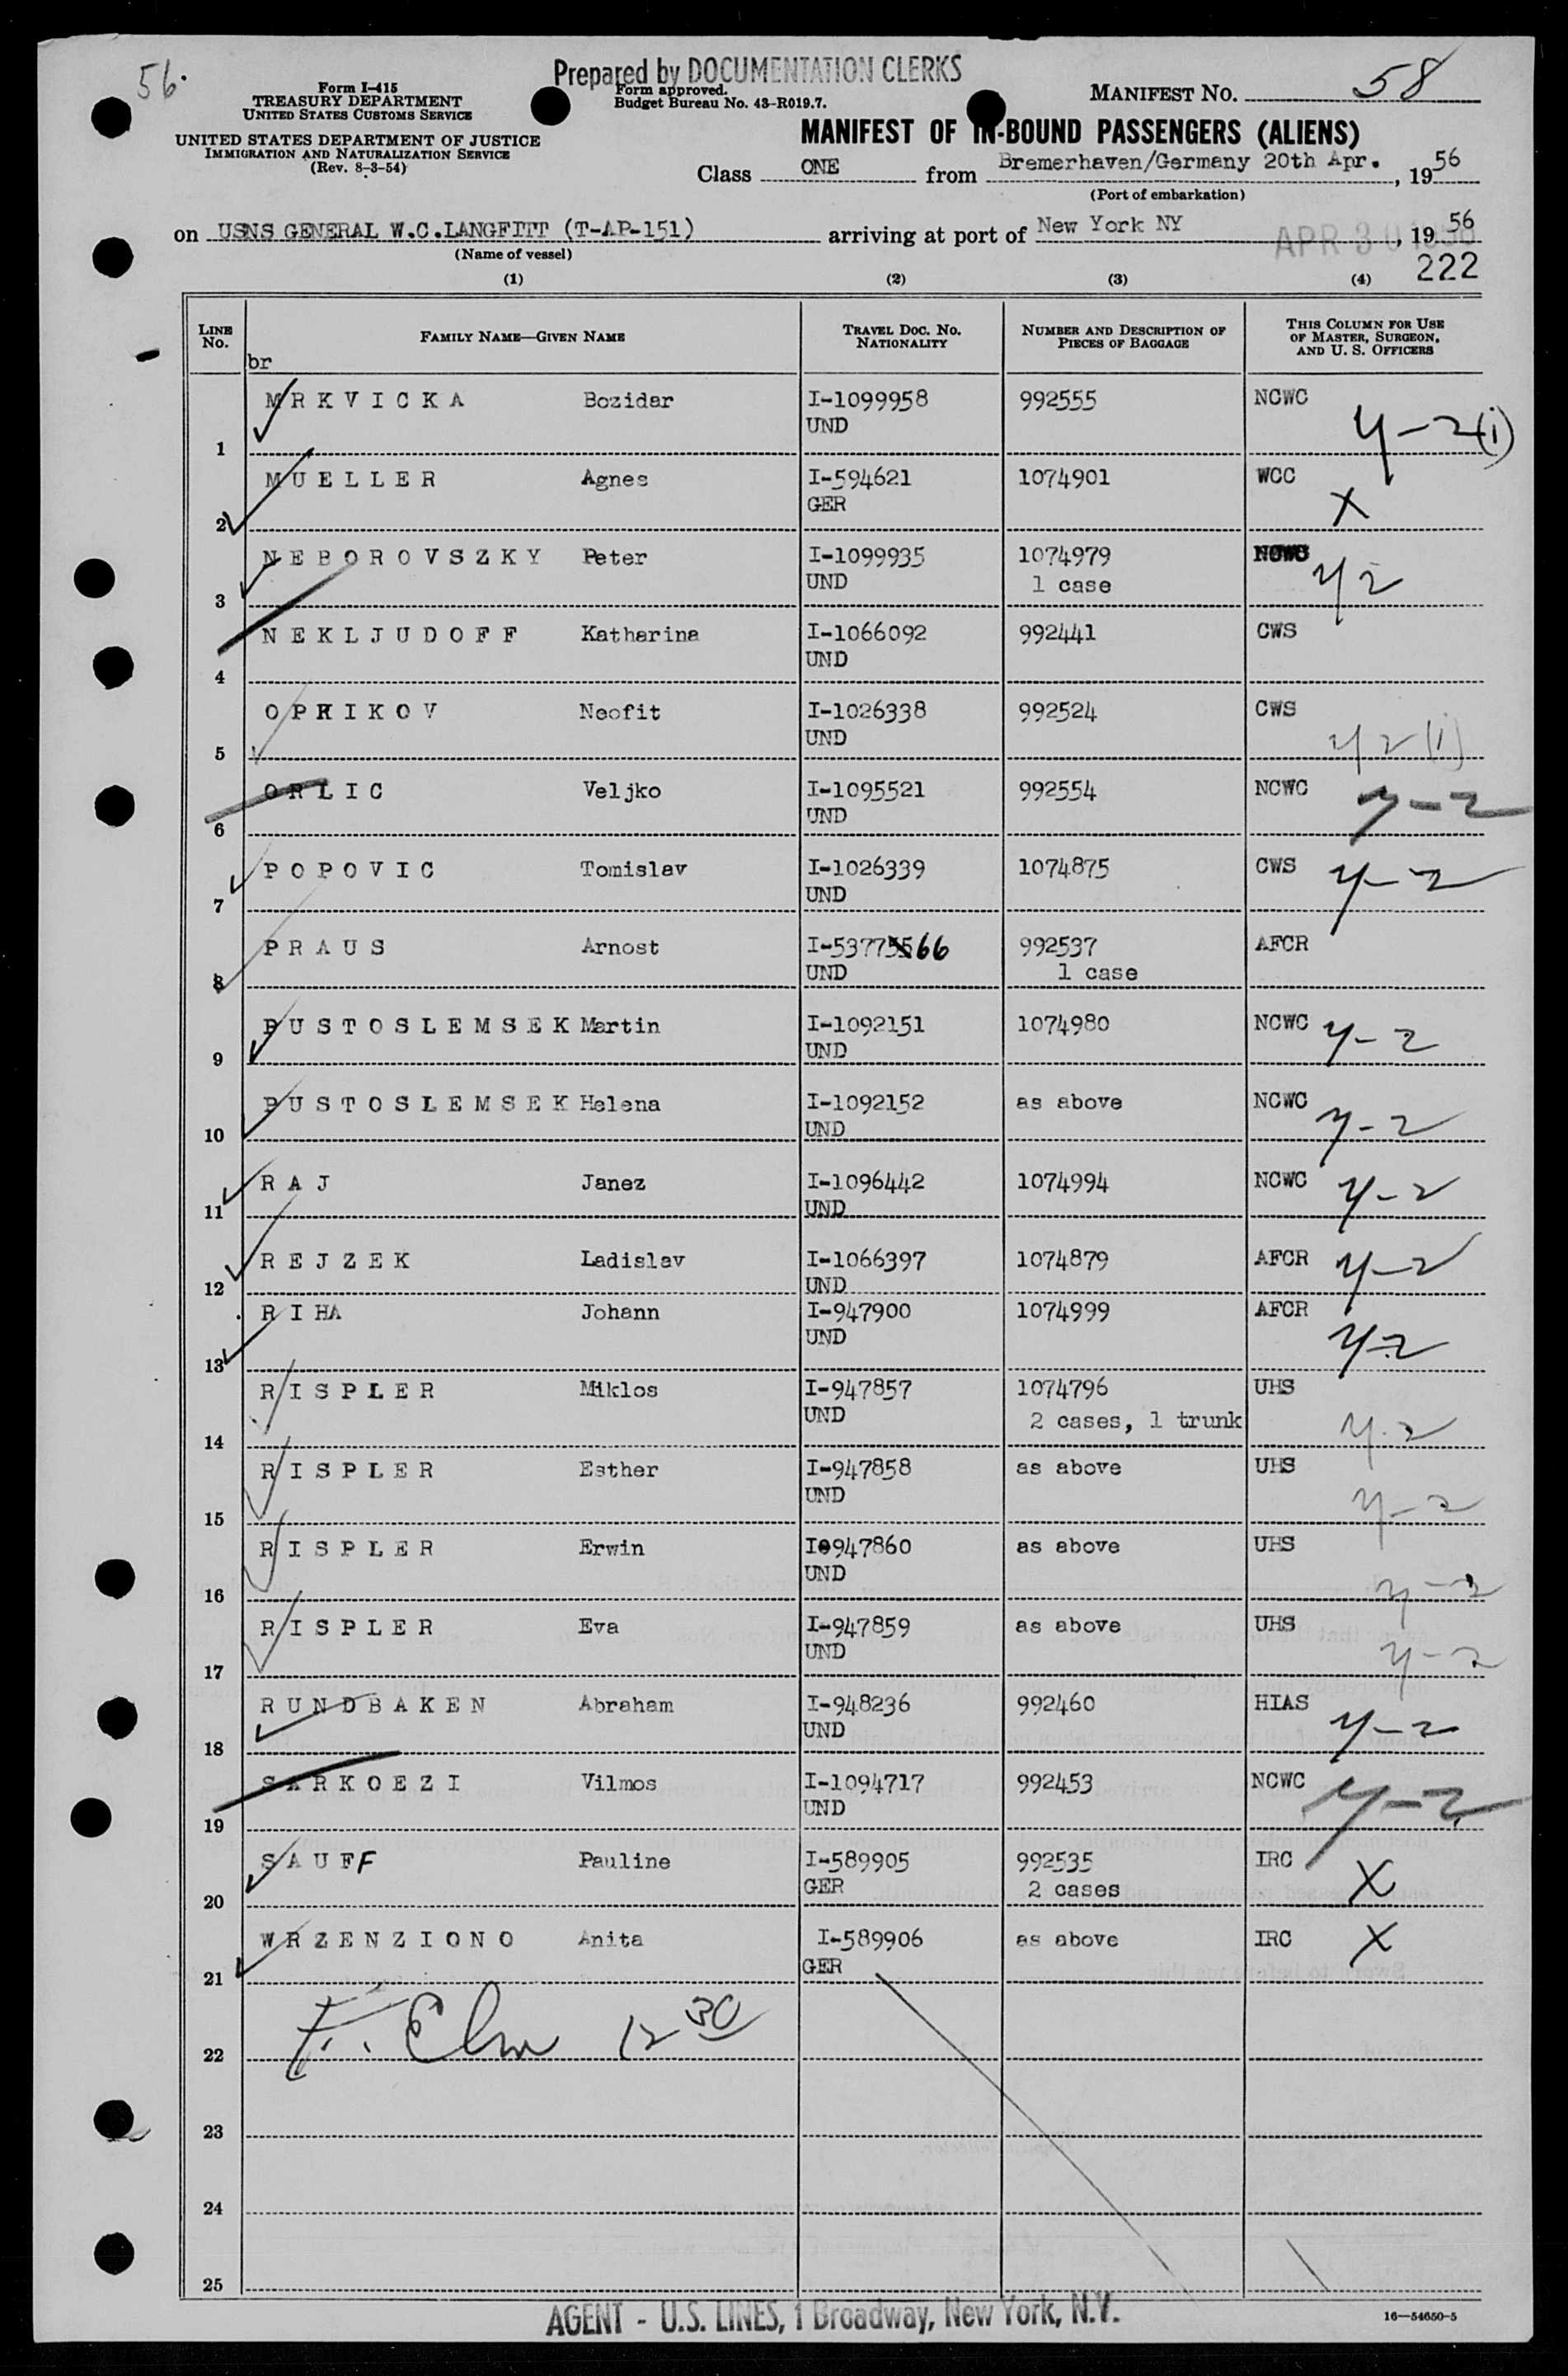 56.
Prepared by DOCUMENTATION CLERKS
Form I-415
TREASURY DEPARTMENT
UNITED STATES CUSTOMS SERVICE
UNITED STATES DEPARTMENT OF JUSTICE
IMMIGRATION AND NATURALIZATION SERVICE
(Rev. 8-3-54)
Form approved.
Budget Bureau No. 43-R019.7.
MANIFEST NO. 58
MANIFEST OF IN-BOUND PASSENGERS (ALIENS)
Class ONE from Bremerhaven/Germany 20th Apr., 1956
(Port of embarkation)
on USNS GENERAL W.C.LANGFITT (T-AP-151) arriving at port of New York NY APR 30 1956, 1956
(Name of vessel)
222
(1) (2) (3) (4)
LINE NO. FAMILY NAME—GIVEN NAME TRAVEL DOC. NO. NATIONALITY NUMBER AND DESCRIPTION OF PIECES OF BAGGAGE THIS COLUMN FOR USE OF MASTER, SURGEON, AND U. S. OFFICERS
br
1 MRKVICKA Bozidar I-1099958 UND 992555 NCWC y-2(i)
2 MUELLER Agnes I-594621 GER 1074901 WCC X
3 NEBOROVSZKY Peter I-1099935 UND 1074979 1 case y2
4 NEKLJUDOFF Katharina I-1066092 UND 992441 CWS
5 OPRIKOV Neofit I-1026338 UND 992524 CWS y2(i)
6 ORLIC Veljko I-1095521 UND 992554 NCWC y-2
7 POPOVIC Tomislav I-1026339 UND 1074875 CWS y-2
8 PRAUS Arnost I-53775566 UND 992537 1 case AFCR
9 PUSTOSLEMSEK Martin I-1092151 UND 1074980 NCWC y-2
10 PUSTOSLEMSEK Helena I-1092152 UND as above NCWC y-2
11 RAJ Janez I-1096442 UND 1074994 NCWC y-2
12 REJZEK Ladislav I-1066397 UND 1074879 AFCR y-2
13 RIHA Johann I-947900 UND 1074999 AFCR y-2
14 RISPLER Miklos I-947857 UND 1074796 2 cases, 1 trunk UHS y-2
15 RISPLER Esther I-947858 UND as above UHS y-2
16 RISPLER Erwin I-947860 UND as above UHS y-2
17 RISPLER Eva I-947859 UND as above UHS y-2
18 RUNDBAKEN Abraham I-948236 UND 992460 HIAS y-2
19 SARKOEZI Vilmos I-1094717 UND 992453 NCWC y-2
20 SAUFF Pauline I-589905 GER 992535 2 cases IRC X
21 WRZENZIONO Anita I-589906 GER as above IRC X
22 F. Elm 12 30
23
24
25
AGENT - U.S. LINES, 1 Broadway, New York, N.Y.
16—54650-5